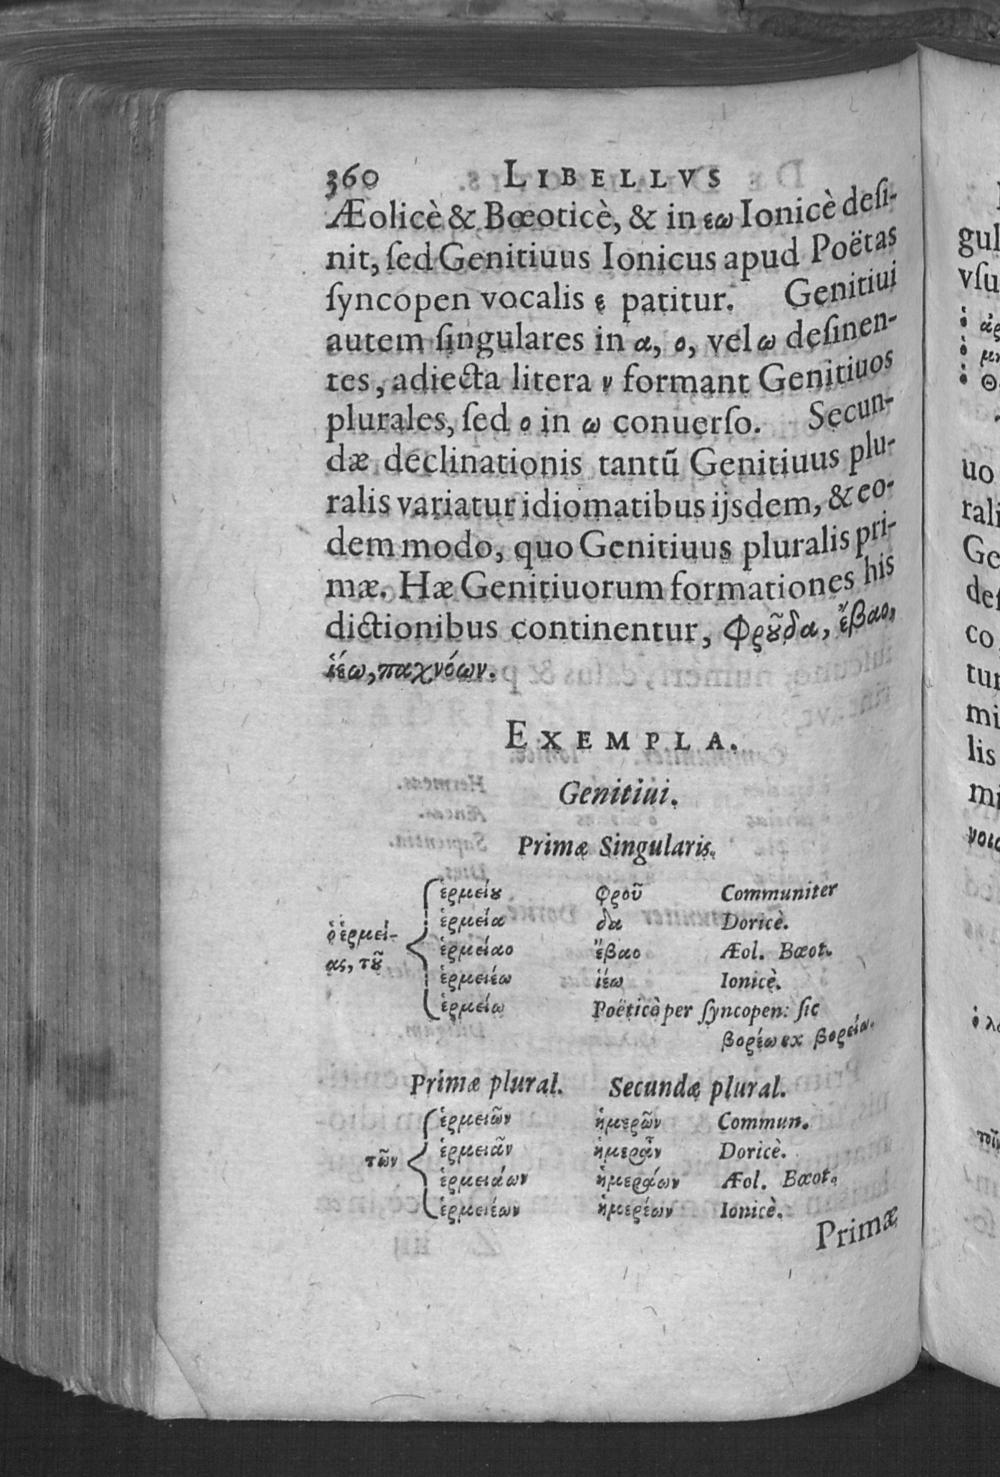 360 LIBELLVS
Æolicè & Bœoticè, & in εω Ionicè desi-
nit, sed Genitiuus Ionicus apud Poëtas
syncopen vocalis ε patitur. Genitiui
autem singulares in α, ο, vel ω desinen-
tes, adiecta litera ν formant Genitiuos
plurales, sed ο in ω conuerso. Secun-
dæ declinationis tantũ Genitiuus plu-
ralis variatur idiomatibus ijsdem, & eo-
dem modo, quo Genitiuus pluralis pri-
mæ. Hæ Genitiuorum formationes his
dictionibus continentur, φροῦδα, ἔβαο,
ἱέω, παχνόων.
EXEMPLA.
Genitiui.
Primæ Singularis.
ἑρμείου φροῦ Communiter
ἑρμεία δα Doricè.
ὁ ἑρμεί- ἑρμείαο ἔβαο Æol. Bœot.
ας, τοῦ ἑρμειέω ἱέω Ionicè.
ἑρμείω Poëticò per syncopen: sic
βορέω ex βορεία.
Primæ plural. Secundæ plural.
ἑρμειῶν ἡμερῶν Commun.
τῶν ἑρμειᾶν ἡμερᾶν Doricè.
ἑρμειάων ἡμεράων Æol. Bœot.
ἑρμειέων ἡμερέων Ionicè.
Primæ
gul
vsu
uo
rali
Ge
def
co
tur
mi
lis
mi